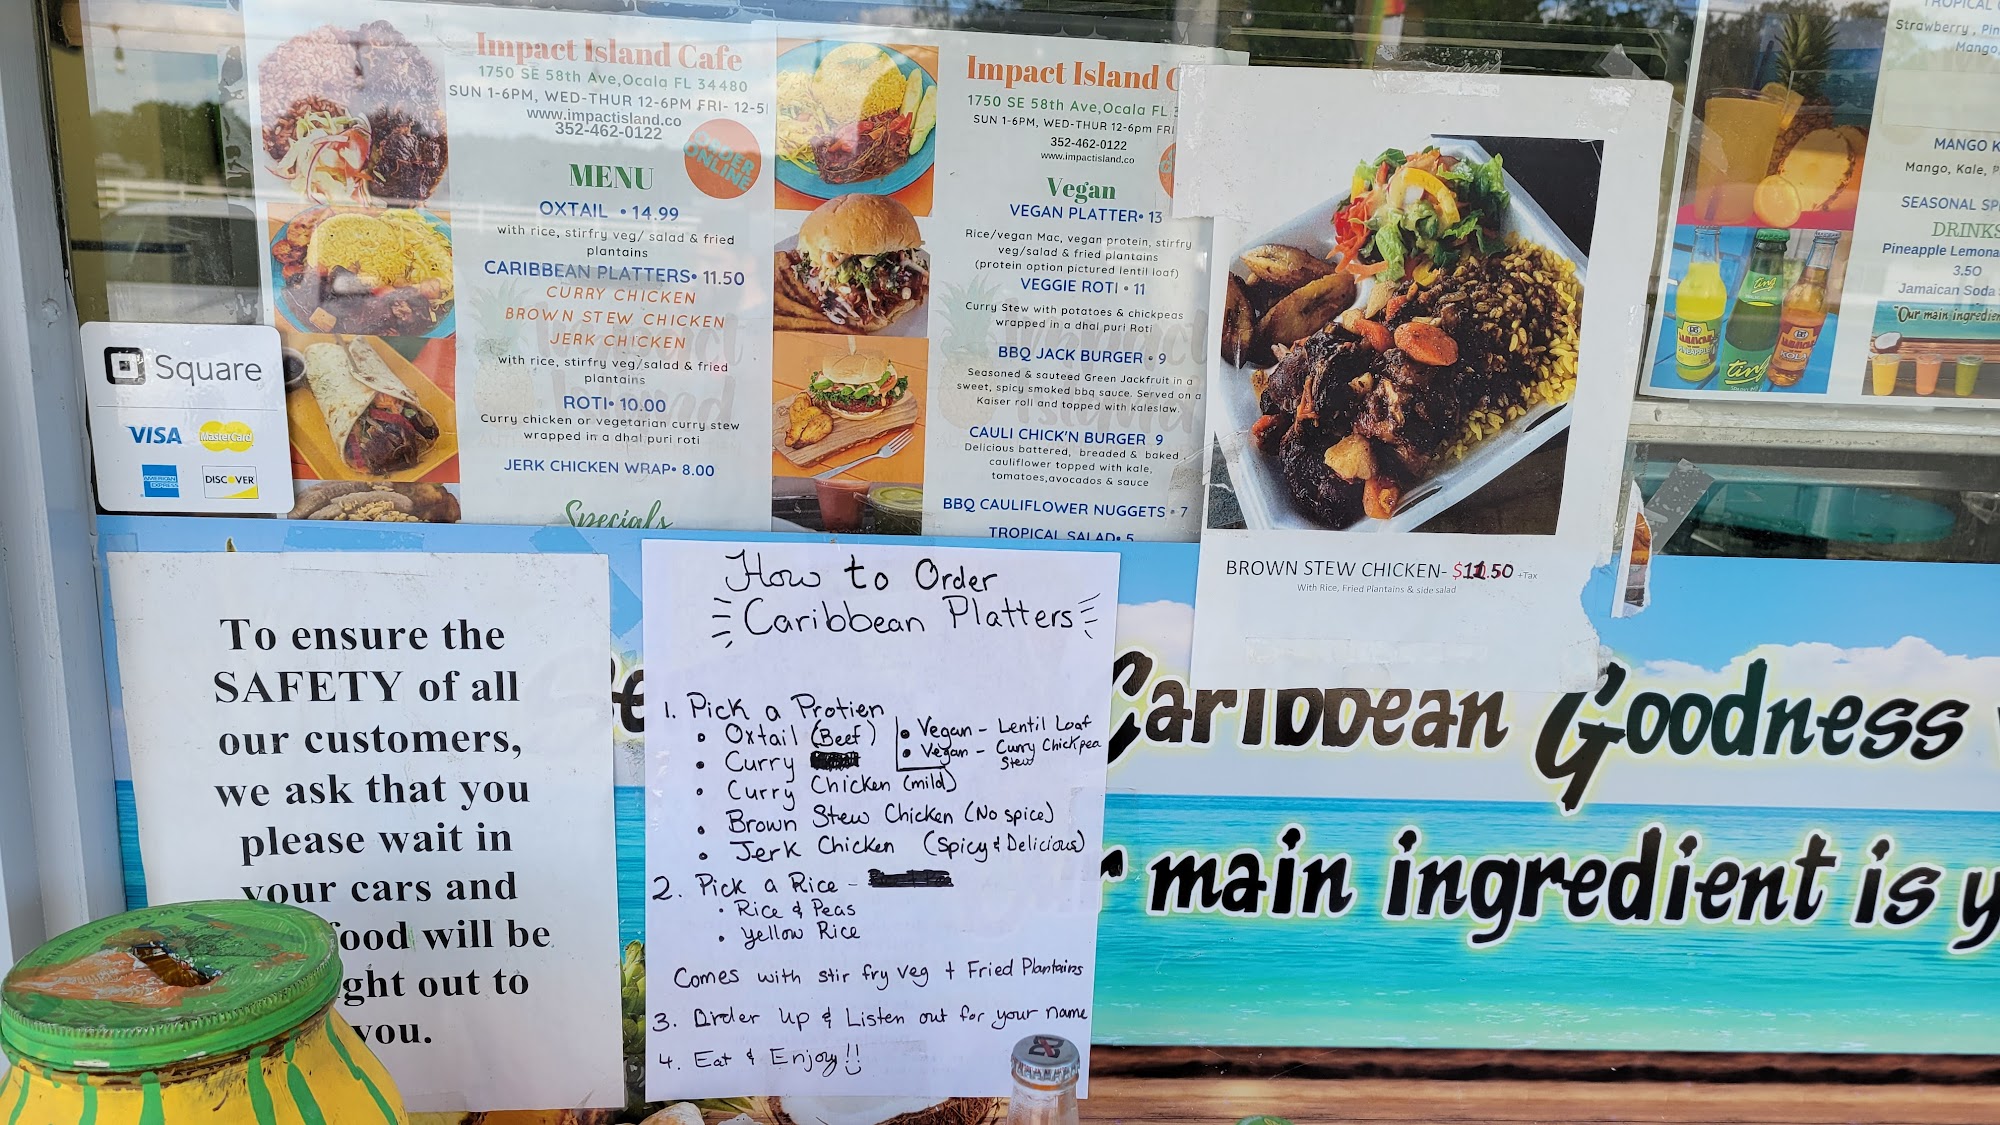 Impact Island Cafe
1750 SE 58th Ave,Ocala FL 34480
SUN 1-6PM, WED-THUR 12-6PM FRI- 12-5
www.impactisland.co
352-462-0122
ORDER
ONLINE
MENU
OXTAIL • 14.99
with rice, stirfry veg/ salad & fried
plantains
CARIBBEAN PLATTERS• 11.50
CURRY CHICKEN
BROWN STEW CHICKEN
JERK CHICKEN
with rice, stirfry veg/salad & fried
plantains
ROTI• 10.00
Curry chicken or vegetarian curry stew
wrapped in a dhal puri roti
JERK CHICKEN WRAP• 8.00
Specials
Impact Island C
1750 SE 58th Ave,Ocala FL
SUN 1-6PM, WED-THUR 12-6pm FRI
352-462-0122
www.impactisland.co
Vegan
VEGAN PLATTER• 13
Rice/vegan Mac, vegan protein, stirfry
veg/salad & fried plantains
(protein option pictured lentil loaf)
VEGGIE ROTI • 11
Curry Stew with potatoes & chickpeas
wrapped in a dhal puri Roti
BBQ JACK BURGER • 9
Seasoned & sauteed Green Jackfruit in a
sweet, spicy smoked bbq sauce. Served on a
Kaiser roll and topped with kaleslaw.
CAULI CHICK'N BURGER 9
Delicious battered, breaded & baked
cauliflower topped with kale,
tomatoes,avocados & sauce
BBQ CAULIFLOWER NUGGETS • 7
TROPICAL SALAD• 5
BROWN STEW CHICKEN- $11.50 +Tax
With Rice, Fried Plantains & side salad
TROPICAL
Strawberry , Pin
Mango,
MANGO K
Mango, Kale, P
SEASONAL SP
DRINKS
Pineapple Lemona
3.50
Jamaican Soda
"Our main ingredien
Ting
Ting
KOLA
Square
VISA
MasterCard
AMERICAN EXPRESS
DISCOVER
To ensure the
SAFETY of all
our customers,
we ask that you
please wait in
your cars and
food will be
ght out to
you.
How to Order
Caribbean Platters
1. Pick a Protien
• Oxtail (Beef)
• Curry
• Curry Chicken (mild)
• Brown Stew Chicken (No spice)
• Jerk Chicken (Spicy & Delicious)
• Vegan - Lentil Loaf
• Vegan - Curry Chickpea
Stew
2. Pick a Rice -
• Rice & Peas
• Yellow Rice
Comes with stir fry veg + Fried Plantains
3. Order Up & Listen out for your name
4. Eat & Enjoy!!
Se Caribbean Goodness
r main ingredient is y